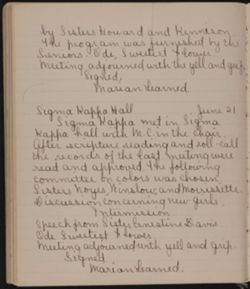 by Sisters Howard and Kennison
The program was furnished by the
Seniors. Ode, Sweetest Flower
Meeting adjourned with the yell and grip.
Signed,
Marian Learned.
Sigma Kappa Hall June 21
Sigma Kappa met in Sigma
Kappa hall with M.C. in the chair.
After scripture reading and roll-call
the records of the last meeting were
read and approved. The following
committee on colors was chosen
Sisters Noyes, Winslow, and Morrissette.
Discussion concerning new girls.
Intermission.
Speech from Sister Ernestine Davis
Ode Sweetest Flower
Meeting adjourned with yell and grip.
Signed
Marian Learned.